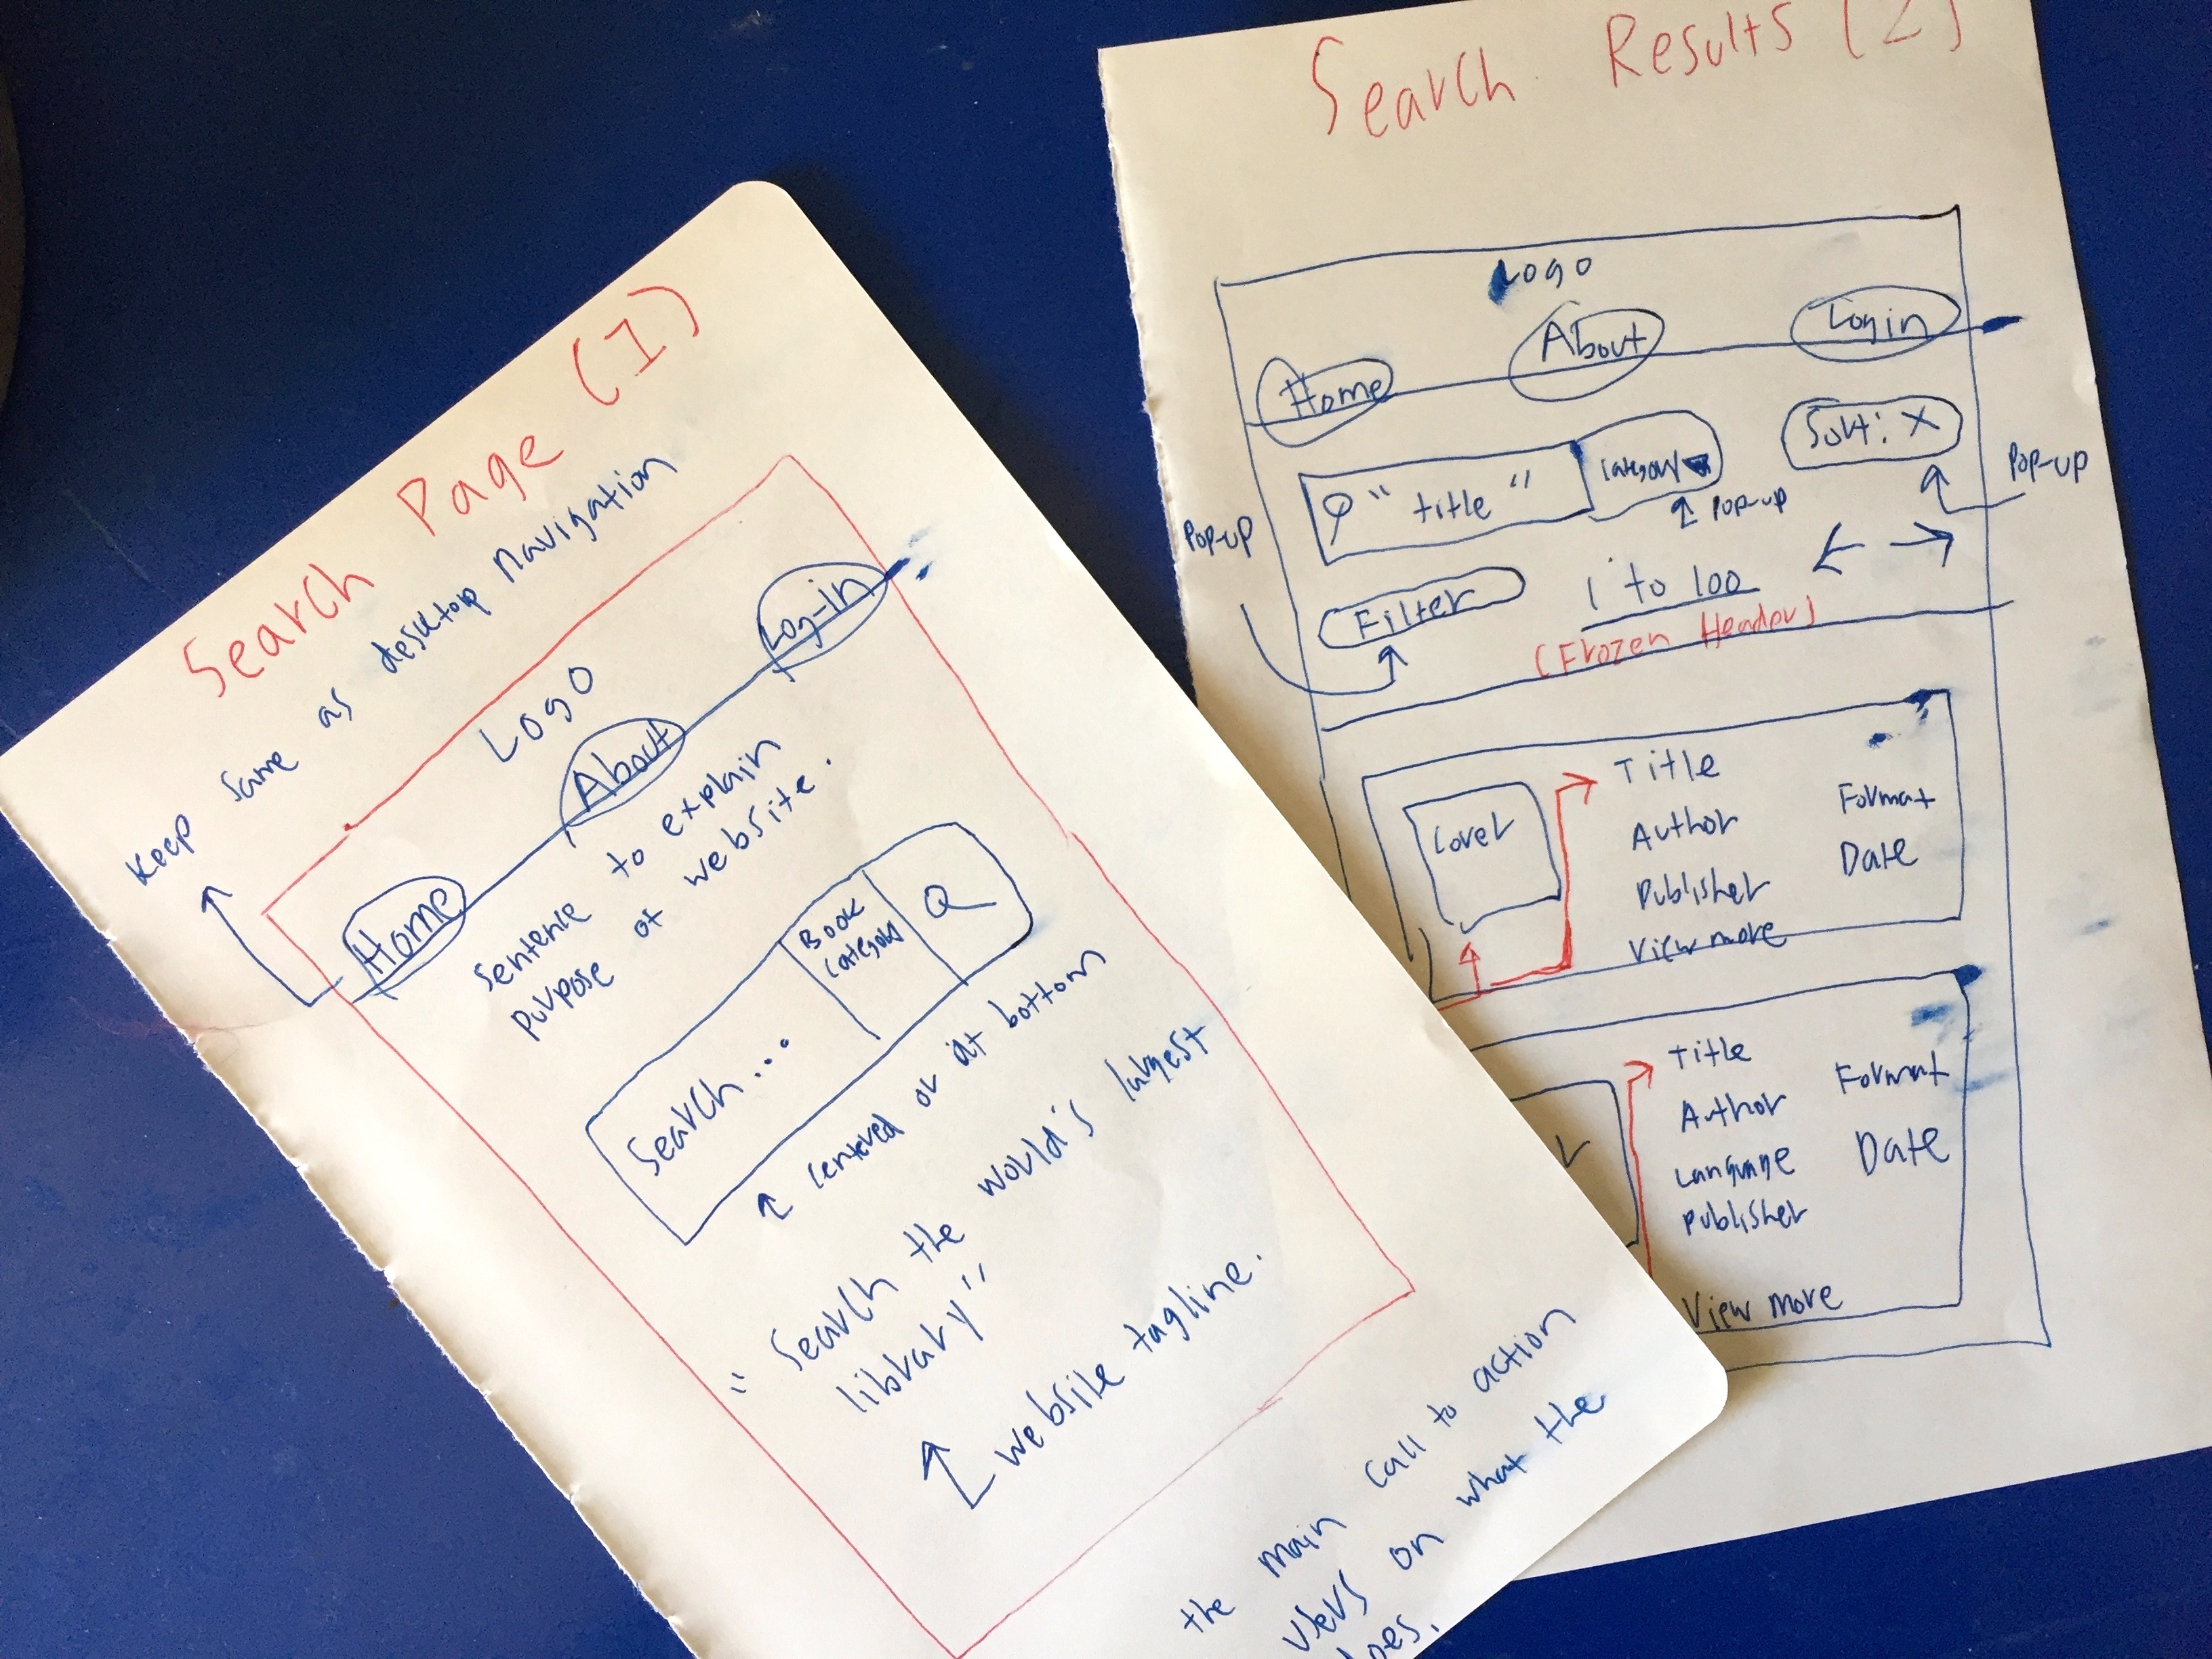 Search Page (1)
Keep same as desktop navigation
Logo
Home About Log-in
Sentence to explain
purpose of website.
Search... Book Category
centered or at bottom
"Search the world's largest
library"
website tagline.
the main call to action
users on what the
Search Results (2)
Logo
Home About Login
"title" Category Sort: X
Pop-up
Pop-up
Pop-up
Filter 1 to 100
(Frozen Header)
Cover
Title
Author Format
Publisher Date
View more
Title
Author Format
Language Date
Publisher
View more